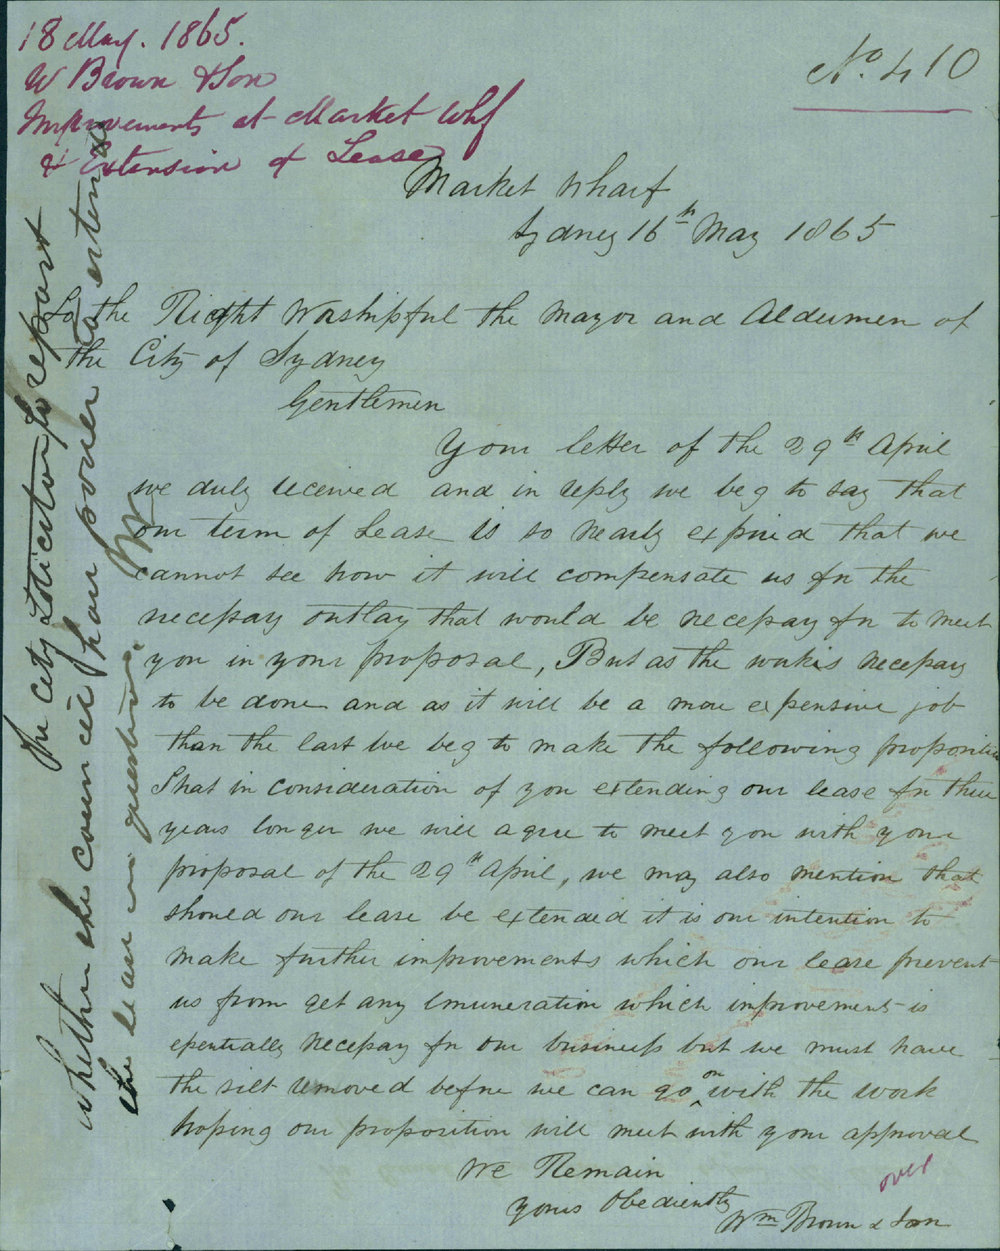 18 May. 1865.
W Brown & Son
Improvements at Market Whf
& Extension of Lease
No. 410
Market Wharf
Sydney 16th May 1865
To the Right Worshipful the Mayor and Aldermen of
the City of Sydney
Gentlemen
Your letter of the 29th April
we duly received and in reply we beg to say that
our term of Lease is so nearly expired that we
cannot see how it will compensate us for the
necessary outlay that would be necessary for to meet
you in your proposal, But as the work is necessary
to be done and as it will be a more expensive job
than the last we beg to make the following proposition
That in consideration of you extending our lease for three
years longer we will agree to meet you with your
proposal of the 29th April, we may also mention that
should our lease be extended it is our intention to
make further improvements which our lease prevent
us from get any emuneration which improvement is
essentially necessary for our business but we must have
the silt removed before we can go on with the work
hoping our proposition will meet with your approval
We Remain
yours Obediently
Wm Brown & Son
over
The City Solicitor to report
whether the council has power to extend
the lease in question.